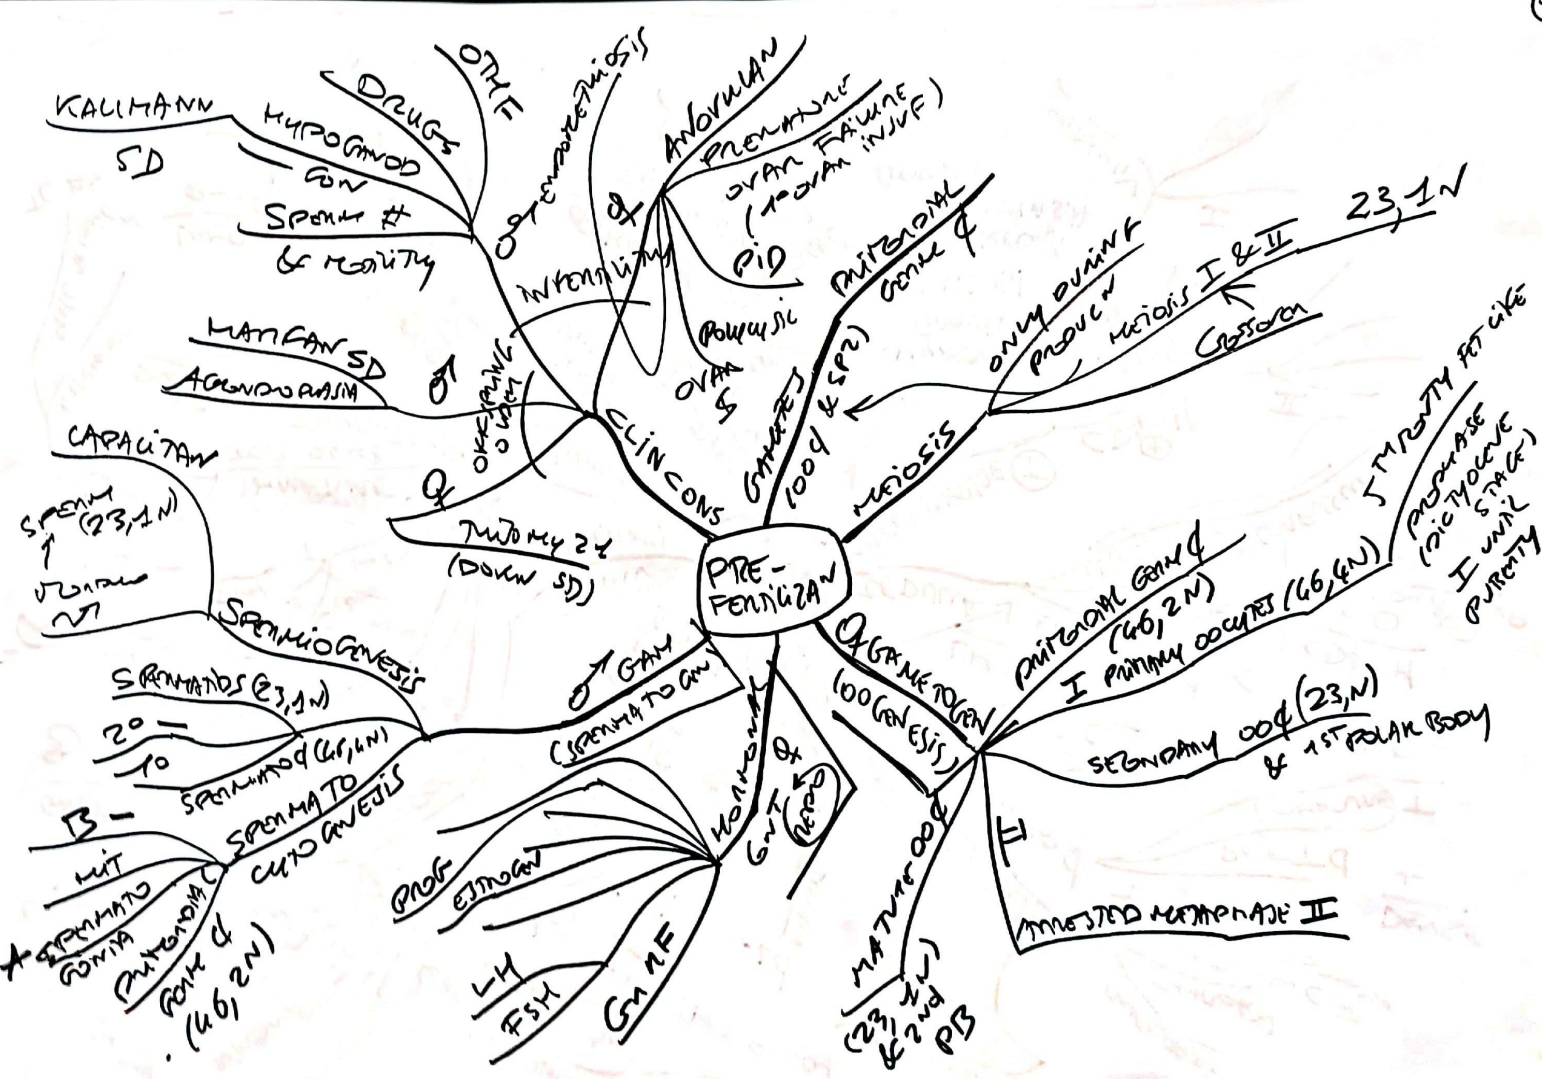 PRE-
FERTILIZAN
CLIN CONS
INFERTILITY
♂
OTHE
DRUGS
HYPOGANOD
GON
KALLMANN
SD
SPERM #
& MOTILITY
♀
ENDOMETRIOSIS
ANOVULAN
PREMATURE
OVAR FAILURE
(1° OVAR INSUF)
PID
POLYCYSTIC
OVAR
$
OFFSPRING
OLDER
♂
MARFAN SD
ACONDROPLASIA
♀
TRISOMY 21
(DOWN SD)
GAMETES
(OO¢ & SPZ)
PRIMORDIAL
GERM ¢
MEIOSIS
ONLY DURING
PRODUCN
MEIOSIS I & II
23,1N
CROSSOVER
♀ GAMETOGEN
(OOGENESIS)
PRIMORDIAL GERM ¢
(46,2N)
I PRIMARY OOCYTES (46,4N)
5TH MONTH FET LIFE
PROPHASE
(DICTYOTENE
STAGE)
I UNTIL
PUBERTY
SECONDARY OO¢ (23,N)
& 1ST POLAR BODY
II
ARRESTED METAPHASE II
MATURE OO¢
(23,1N)
& 2ND
PB
HORMONAL
♀
GNT
REPRO
PROG
ESTROGEN
LH
FSH
GnRF
♂ GAM
(SPERMATOGN)
SPERMIOGENESIS
CAPACITAN
SPERM
(23,1N)
↑
SPERMATIDS (23,1N)
2° —
1°
SPERMATO¢ (46,4N)
SPERMATO
CYTOGENESIS
B —
MIT
A SPERMATO
GONIA
PRIMORDIAL
GERM ¢
(46,2N)